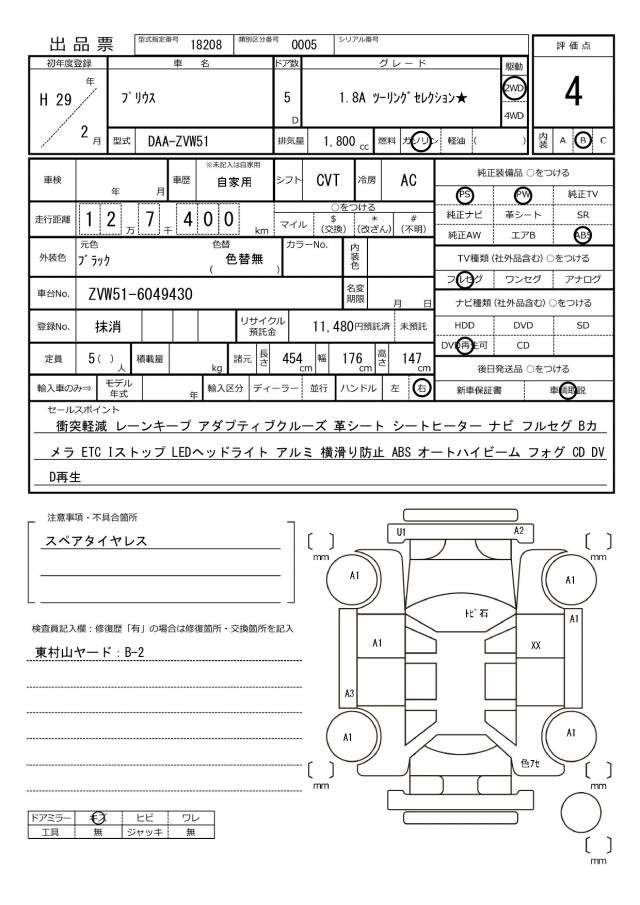 出品票 型式指定番号 18208 類別区分番号 0005 シリアル番号
評価点
4
内装 A B C
初年度登録 車名 ドア数 グレード 駆動
H 29 年 2 月
プリウス 5 D 1.8A ツーリングセレクション★ 2WD 4WD
型式 DAA-ZVW51 排気量 1,800 cc 燃料 ガソリン 軽油 ( )
車検 年 月 車歴 ※未記入は自家用 自家用 シフト CVT 冷房 AC
走行距離 1 2 万 7 千 4 0 0 km
○をつける
マイル $ (交換) * (改ざん) # (不明)
外装色 元色 ブラック 色替 色替無 ( ) カラーNo. 内装色
車台No. ZVW51-6049430 名変期限 月 日
登録No. 抹消 リサイクル預託金 11,480円預託済 未預託
定員 5( ) 人 積載量 kg 諸元 長さ 454 cm 幅 176 cm 高さ 147 cm
輸入車のみ⇒ モデル年式 年 輸入区分 ディーラー 並行 ハンドル 左 右
純正装備品 ○をつける
PS PW 純正TV
純正ナビ 革シート SR
純正AW エアB ABS
TV種類(社外品含む) ○をつける
フルセグ ワンセグ アナログ
ナビ種類(社外品含む) ○をつける
HDD DVD SD
DVD再生可 CD
後日発送品 ○をつける
新車保証書 車輌取説
セールスポイント
衝突軽減 レーンキープ アダプティブクルーズ 革シート シートヒーター ナビ フルセグ Bカ
メラ ETC Iストップ LEDヘッドライト アルミ 横滑り防止 ABS オートハイビーム フォグ CD DV
D再生
注意事項・不具合箇所
スペアタイヤレス
検査員記入欄：修復歴「有」の場合は修復箇所・交換箇所を記入
東村山ヤード：B-2
ドアミラー キズ ヒビ ワレ
工具 無 ジャッキ 無
U1 A2
mm mm
A1 A1
トビ石
A1
A1 XX
A3
A1 A1
色アセ
mm mm
mm